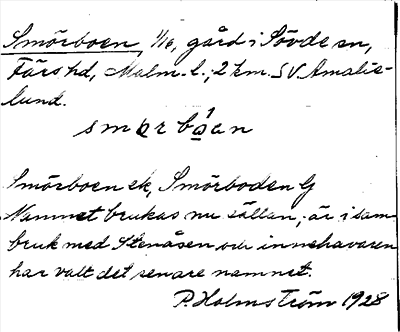 Smörboen, 1/16, gård i Sövde sn,
Färs hd, Malm. l.; 2 km. SV. Amalie-
lund.
smörbo̱an
Smörboen ek, Smörboden G
Namnet brukas nu sällan; är i sam-
bruk med Stenåsen och innehavaren
har valt det senare namnet.
P. Holmström 1928